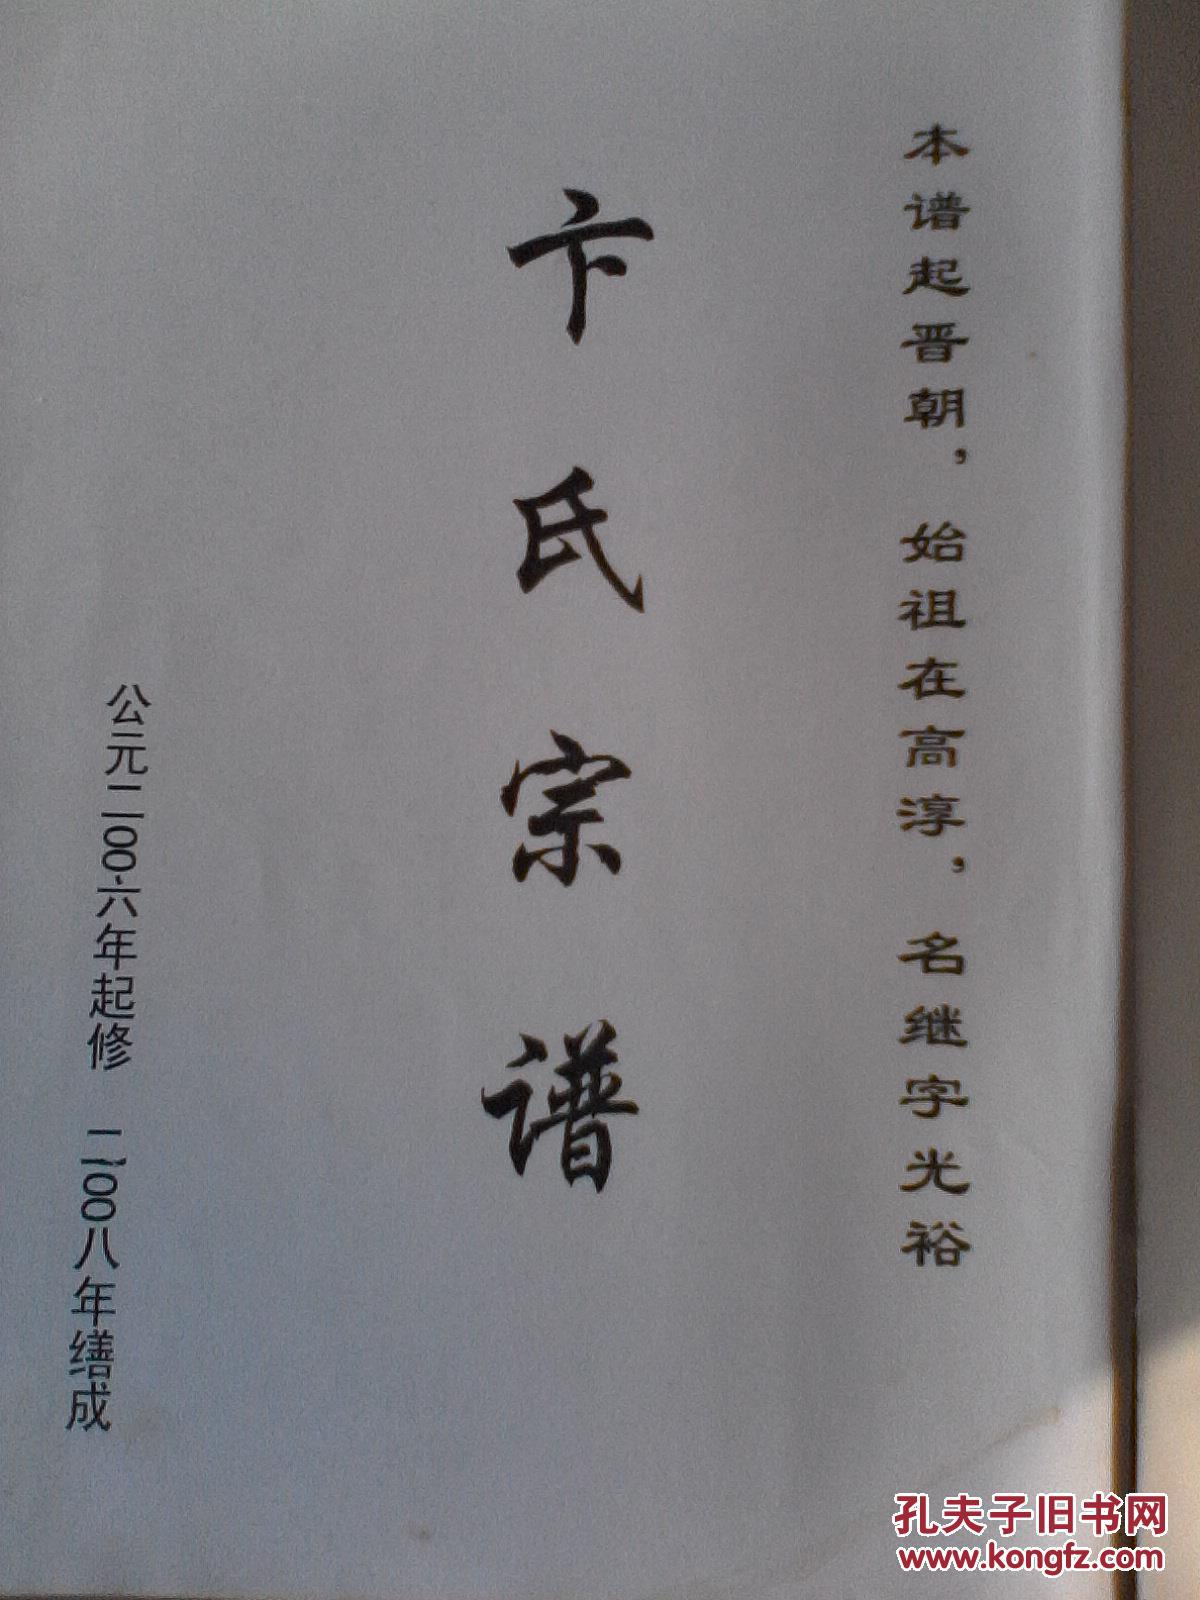 本谱起晋朝，始祖在高淳，名继字光裕
卞氏宗谱
公元二00六年起修 二00八年缮成
孔夫子旧书网
www.kongfz.com